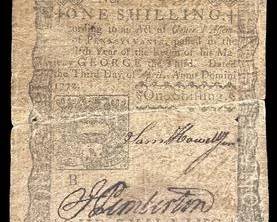 ONE SHILLING,
cording to an Act of
of PENNSYLVANIA, passed in the
Year of the Reign of his Ma-
GEORGE the Third. Dated
the Third Day of April, Anno Domini
1772.
One Shilling.
Sam Howell
B
J Pemberton